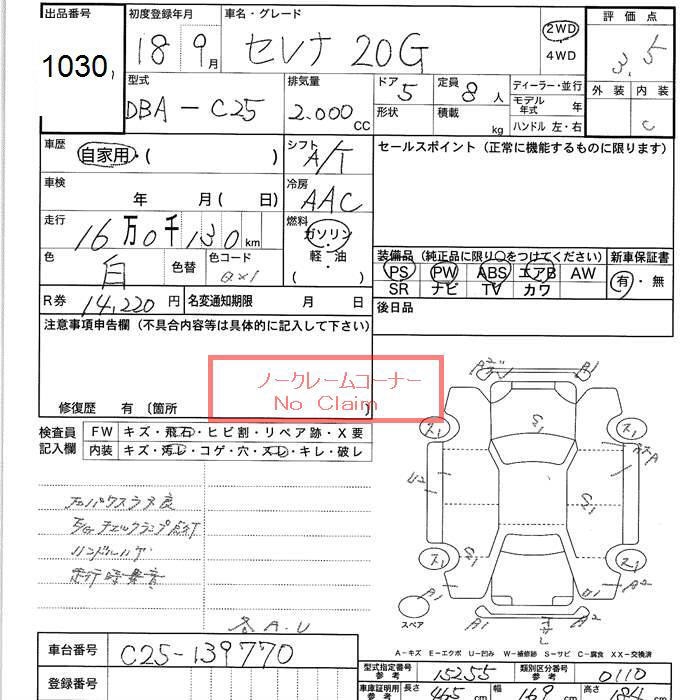 出品番号 初度登録年月 車名・グレード 評価点
1030 18 9月 セレナ 20G 2WD 4WD 3.5
外装 内装
C
型式 排気量 ドア 定員 ディーラー・並行
DBA-C25 2.000 CC 5 形状 8人 積載 kg モデル年式 年
ハンドル 左・右
車歴 シフト セールスポイント (正常に機能するものに限ります)
自家用・( ) A/T
車検 冷房
年 月( 日) AAC
走行 燃料
16万0千130km ガソリン・軽・油 ( )
装備品 (純正品に限り○をつけてください) 新車保証書
色 色替 色コード
白 QX1
PS PW ABS エアB AW 有・無
SR ナビ TV カワ
R券 14,220円 名変通知期限 月 日 後日品
注意事項申告欄 (不具合内容等は具体的に記入して下さい)
ノークレームコーナー
No Claim
修復歴 有 〔箇所 〕
検査員記入欄 FW キズ・飛石・ヒビ割・リペア跡・X要
内装 キズ・汚レ・コゲ・穴・スレ・キレ・破レ
E/Gチェックランプ点灯
ハンドルハゲ
走行時異音
各A.U
スペア
A-キズ E-エクボ U-凹み W-補修跡 S-サビ C-腐食 XX-交換済
車台番号 C25-139770
登録番号
型式指定番号 参考 15255 類別区分番号 参考 0110
車庫証明用 参考 長さ 465 cm 幅 169 cm 高さ 184 cm